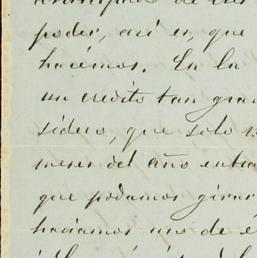 poder, así es, que
hacémos. En la
un credito tan gran
sidero, que solo
meses del año entra
que podamos girar
haciamos uso de é